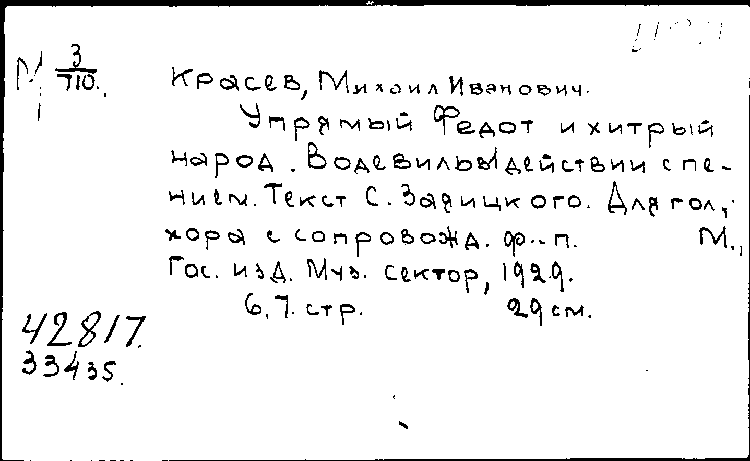 М 3/710.
Красев, Михаил Иванович.
Упрямый Федот и хитрый
народ. Водевиль в 1 действии с пе-
нием. Текст С. Заяицкого. Для гол,
хора с сопровожд. ф.-п. М.,
Гос. изд. Муз. сектор, 1929.
6,7. стр. 29 см.
42817.
33435.